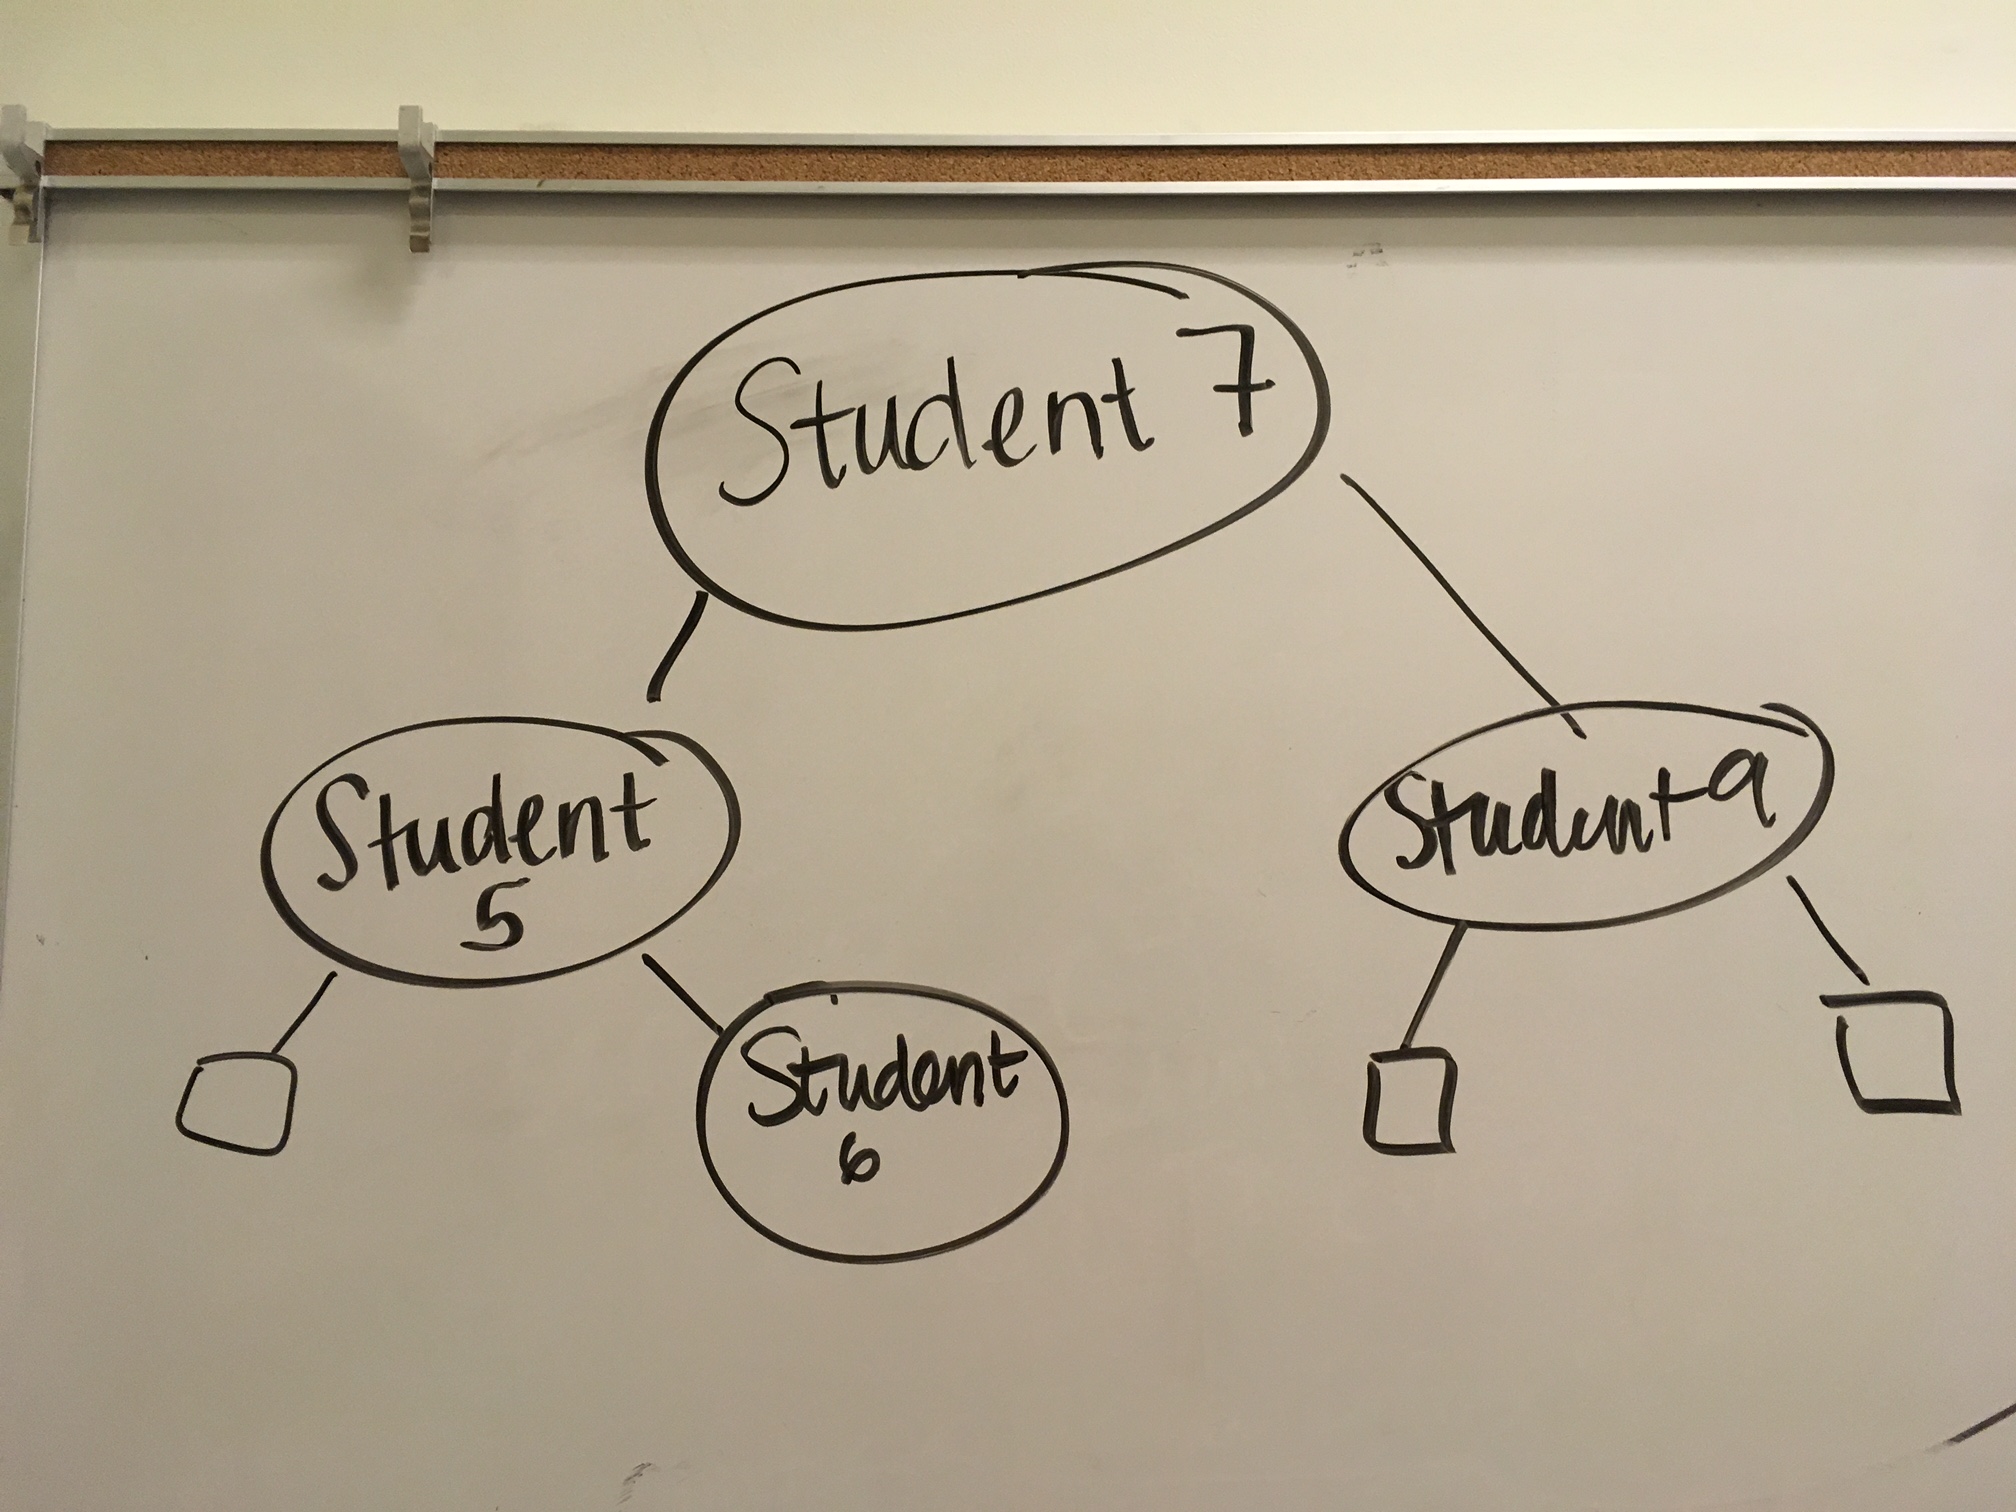 Student 7
Student
5
Student 9
Student
6